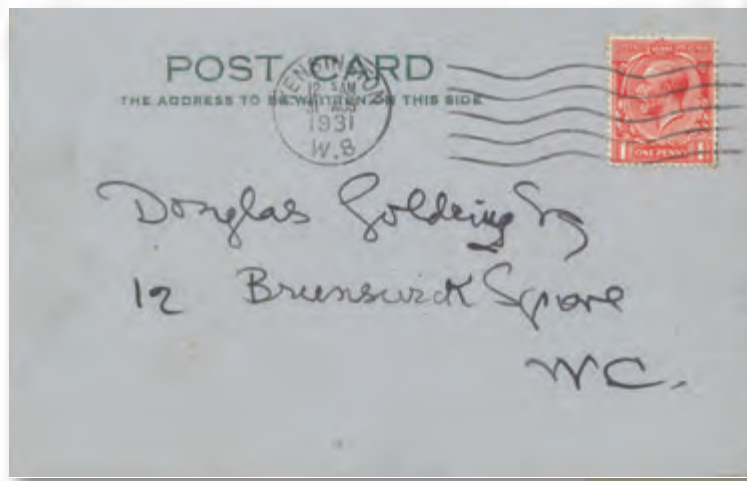 POST CARD
THE ADDRESS TO BE WRITTEN ON THIS SIDE
KENSINGTON
12
31 AUG
1931
W.8
ONE PENNY
Douglas Goldring Esq
12 Brunswick Square
WC.